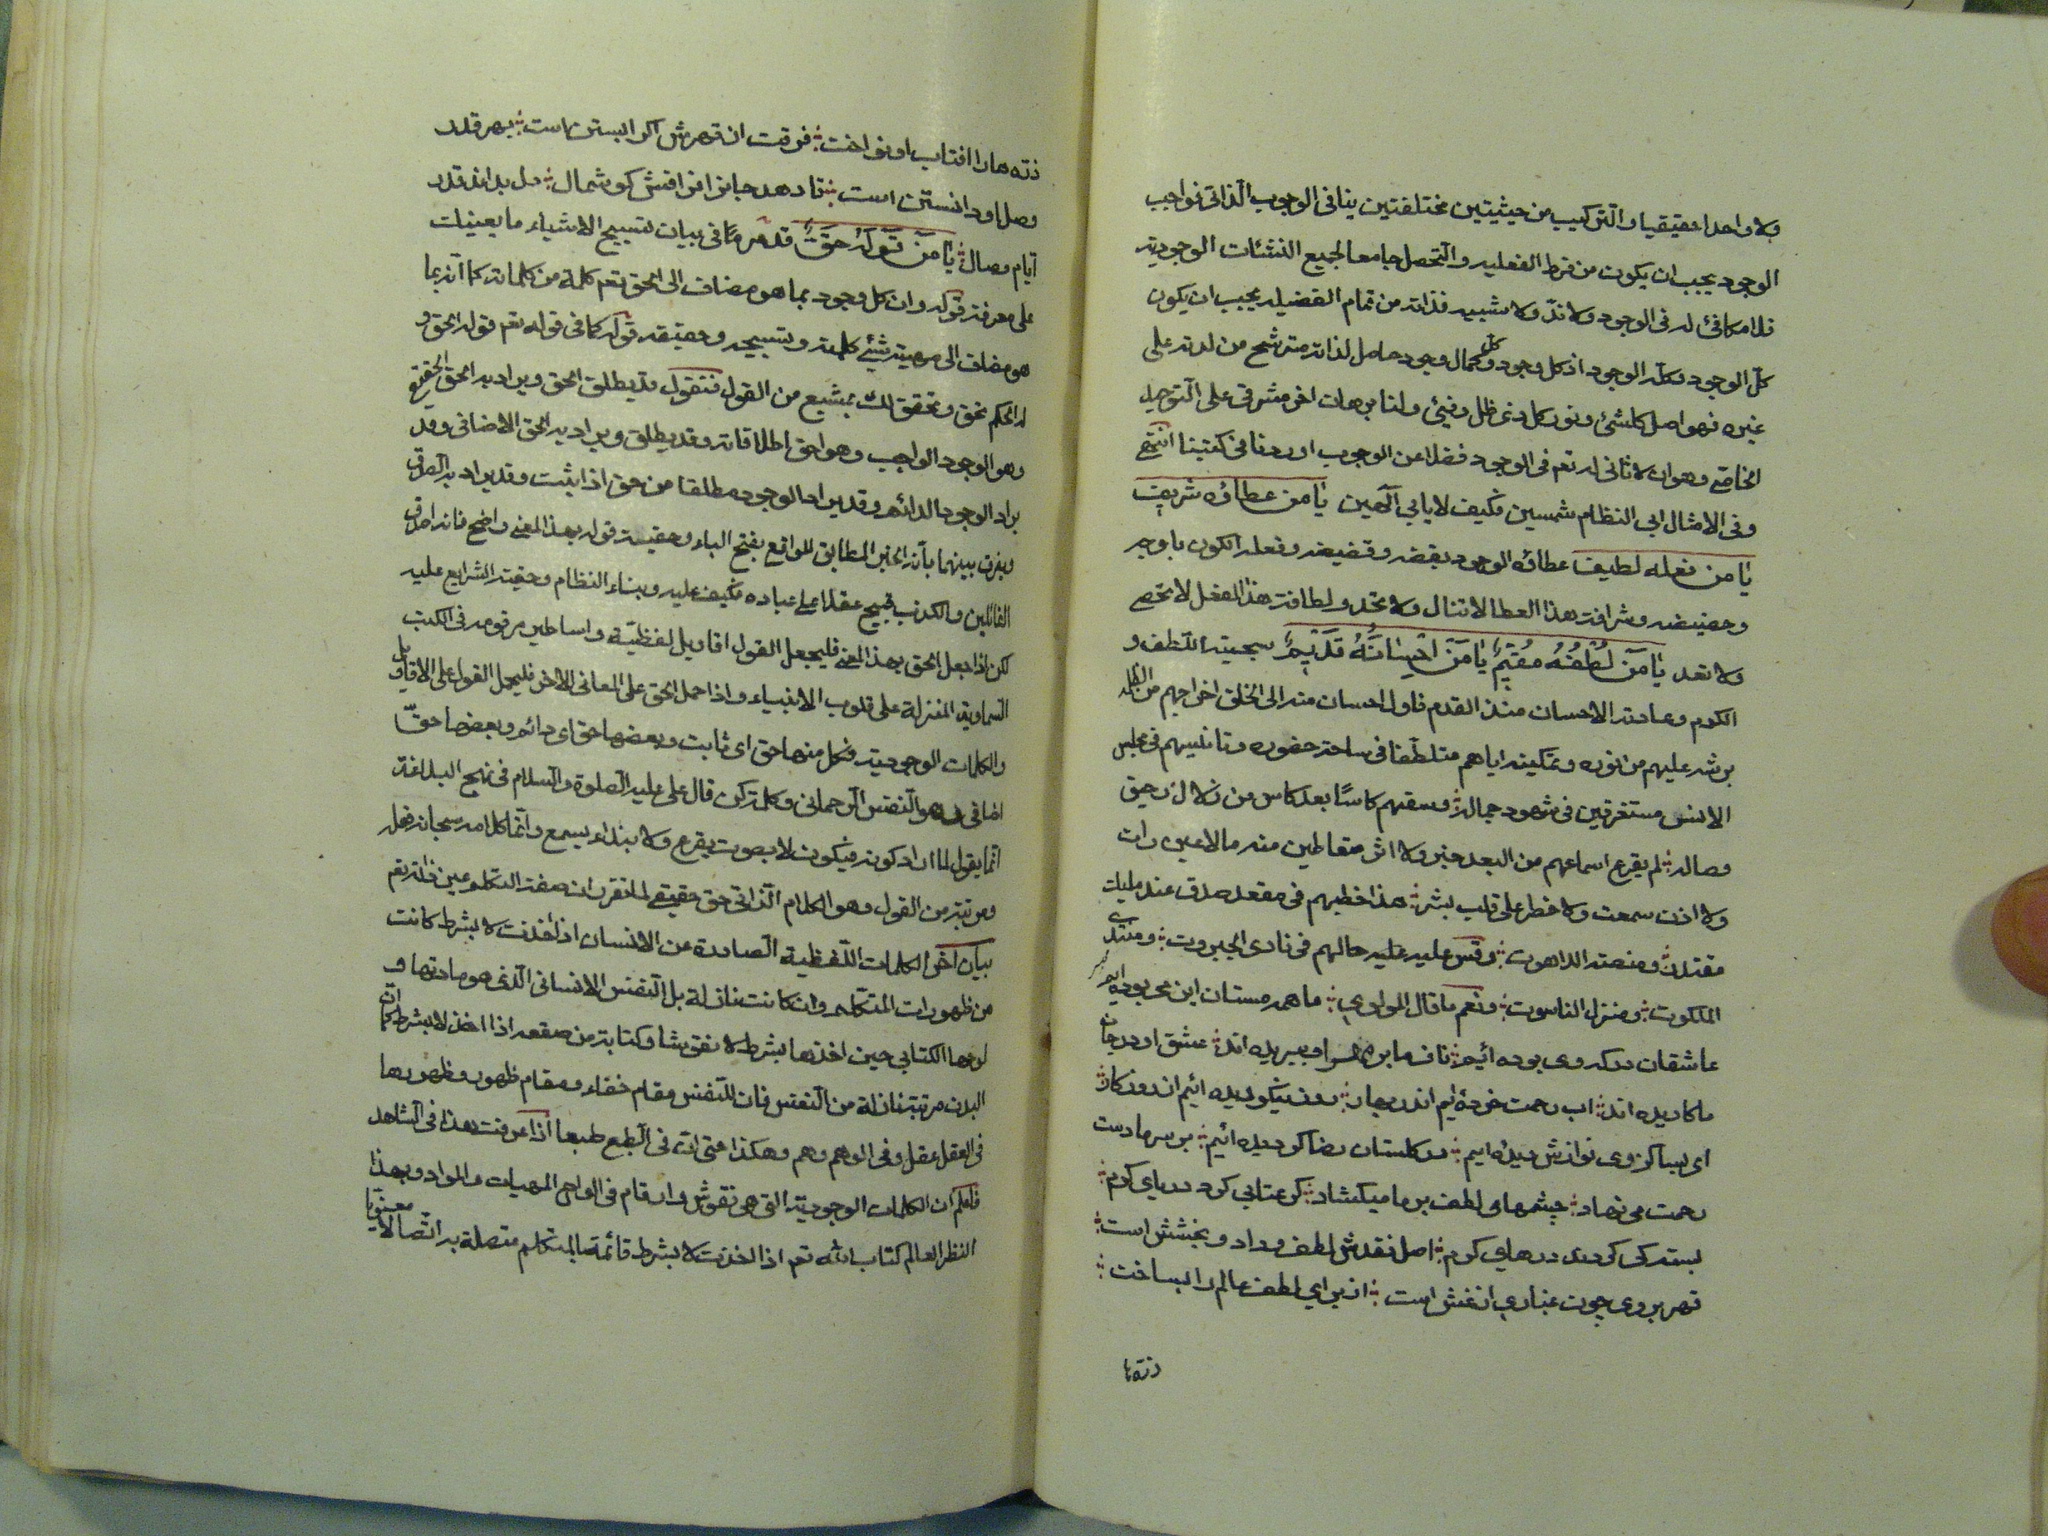 ولا واحدا حقيقيا والتركيب من حيثيتين مختلفتين ينافى الوجوب الذاتى فواجب
الوجود يجب ان يكون من فرط الفعليه والتحصل جامعا لجميع النشئات الوجوديه
فلا مكافئ له فى الوجود ولا ندّ ولا شبيه فذاته من تمام الفضيله يجب ان يكون
كلّ الوجود وكله الوجود اذ كل وجود وكل كمال وجود حاصل لذاته مترشح من لدنه على
غيره فهو اصل كلشئ ونور كل ذى ظل وفيئ ولنا برهان اخر مشرقى على التوحيد
الخاصى وهو ان لا ثانى له تعم فى الوجود فضلا عن الوجوب اوردنا فى كتبنا انتهى
وفى الامثال ابى النظام شمسين فكيف لا يابى الٓهين يا من عطاؤه شريف
يا من فعله لطيف عطائه الوجود بقضه وقضيضه وفعله الكون باوجه
وحضيضه وشرافت هذا العطا لا تنال ولا تحد ولطافت هذا الفعل لا تحصى
ولا تعد يا مَن لُطْفُهُ مُقيمٌ يا مَنْ اِحْسانُهُ قَديمٌ سجيته اللطف و
الكرم وعادته الاحسان منذ القدم فاول احسان منه الى الخلق اخراجهم من الظلمه
برشه عليهم من نوره وتمكينه اياهم متلطفا فى ساحة حضوره وتانيسهم فى مجلس
الانس مستغرقين فى شهود جماله وسقيهم كاسًا بعد كاس من زلال رحيق
وصاله لم يقرع اسماعهم من البعد خبر ولا اثر متعاطين منه ما لا عين رات
ولا اذن سمعت ولا خطر على قلب بشر هذا خطبهم فى مقعد صدق عند مليك
مقتدر ومنصة اللاهوت وقس عليه عليه حالهم فى نادى الجبروت ومنتدى
الملكوت ومنزل الناسوت ونعم ما قال المولوى ما همه مستان اين مى بوده ايم
عاشقان درگه وى بوده ائيم ناف ما بر مهر او ببريده اند عشق او در جان
ما كاريده اند اب رحمت خورده ايم اندر بهار روز نيكو ديده ائيم از روزكار
اى بسا كز وى نوازش ديده ايم در كلستان رضا كرديده ائيم بر سر ما دست
رحمت مى نهاد چشمهاى لطف بر ما ميكشاد كر عتابى كرد درياى كرم
بسته كى كردند درهاى كرم اصل نقدش لطف وداد و بخشش است
قهر بر وى چون غبارى از غش است از براى لطف عالم را بساخت
ذرّه ها
ذره ها را افتاب او نواخت فرقت از قهرش اكر ابستن است بهر قدر
وصل او دانستن است تا دهد جانرا فراقش كوشمال دل بداند قدر
ايام وصال يا مَنْ قَوْلُهُ حَقٌّ قد مر منا فى بيان تسبيح الاشياء ما يعينك
على معرفة قوله وان كل وجود بما هو مضاف الى الحق تعم كلمة من كلماته كما انه بما
هو مضاف الى مهية شيئ كلمته وتسبيحه وحقيقة قوله كما فى قوله تعم قوله الحق و
له الحكم بحق وتحقق لك بمشبع من القول فنقول قد يطلق الحق ويراد به الحق الحقيقى
وهو الوجود الواجب وهو احق اطلاقاته وقد يطلق ويراد به الحق الاضافى وقد
يراد الوجود الدائم وقد يراد الوجود مطلقا من حق اذا ثبت وقد يراد به الصدق
ويفرق بينهما بانه الخبر المطابق للواقع بفتح الباء وحقيت قوله بهذا المعنى واضح فانه اصدق
القائلين والكذب قبيح عقلا على عباده فكيف عليه وبناء النظام وحقية الشرايع عليه
لكن اذا جعل الحق بهذا المعنى فليجعل القول اقاويل لفظيّة واساطير مرقومه فى الكتب
السماويه المنزلة على قلوب الانبياء واذا حمل الحق على المعانى الاخر فليحمل القول على الاقاويل
والكلمات الوجوديه فكل منها حق اى ثابت وبعضها حق اى دائم وبعضها حقّ
اضافى وهو النفس الرحمانى وكلمة كن قال على عليه الصلوة والسلام فى نهج البلاغة
انما يقول لما اراد كونه فيكون لا بصوت يقرع ولا بنداء يسمع وانما كلامه سبحانه فعله
ومرتبة من القول وهو الكلام الذاتى حق حقيقى لما تقرر ان صفة التكلم عين ذاته تعم
بيان اخر الكلمات اللفظية الصادرة عن الانسان اذا اخذت لا بشرط كانت
من ظهورات المتكلم وان كانت نازلة بل النفس الانسانى الذى هو مادتها و
لوحها الكتابى حين اخذها بشرط لا نقوشا وكتابة من صقعه اذا اخذ لا بشرط كما ان
البدن مرتبة نازلة من النفس فان للنفس مقام خفاء ومقام ظهور وظهورها
فى العقل عقل وفى الوهم وهم وهكذا حتى انه فى الطبع طبع اذا عرفت هذا فى الشاهد
فاعلم ان الكلمات الوجوديه التى هى نقوش وارقام فى الواح المهيات والمواد وبهذا
النظر العالم كتاب الله تعم اذا اخذت لا بشرط قائمة بالمتكلم متصلة به اتصالا معنويا